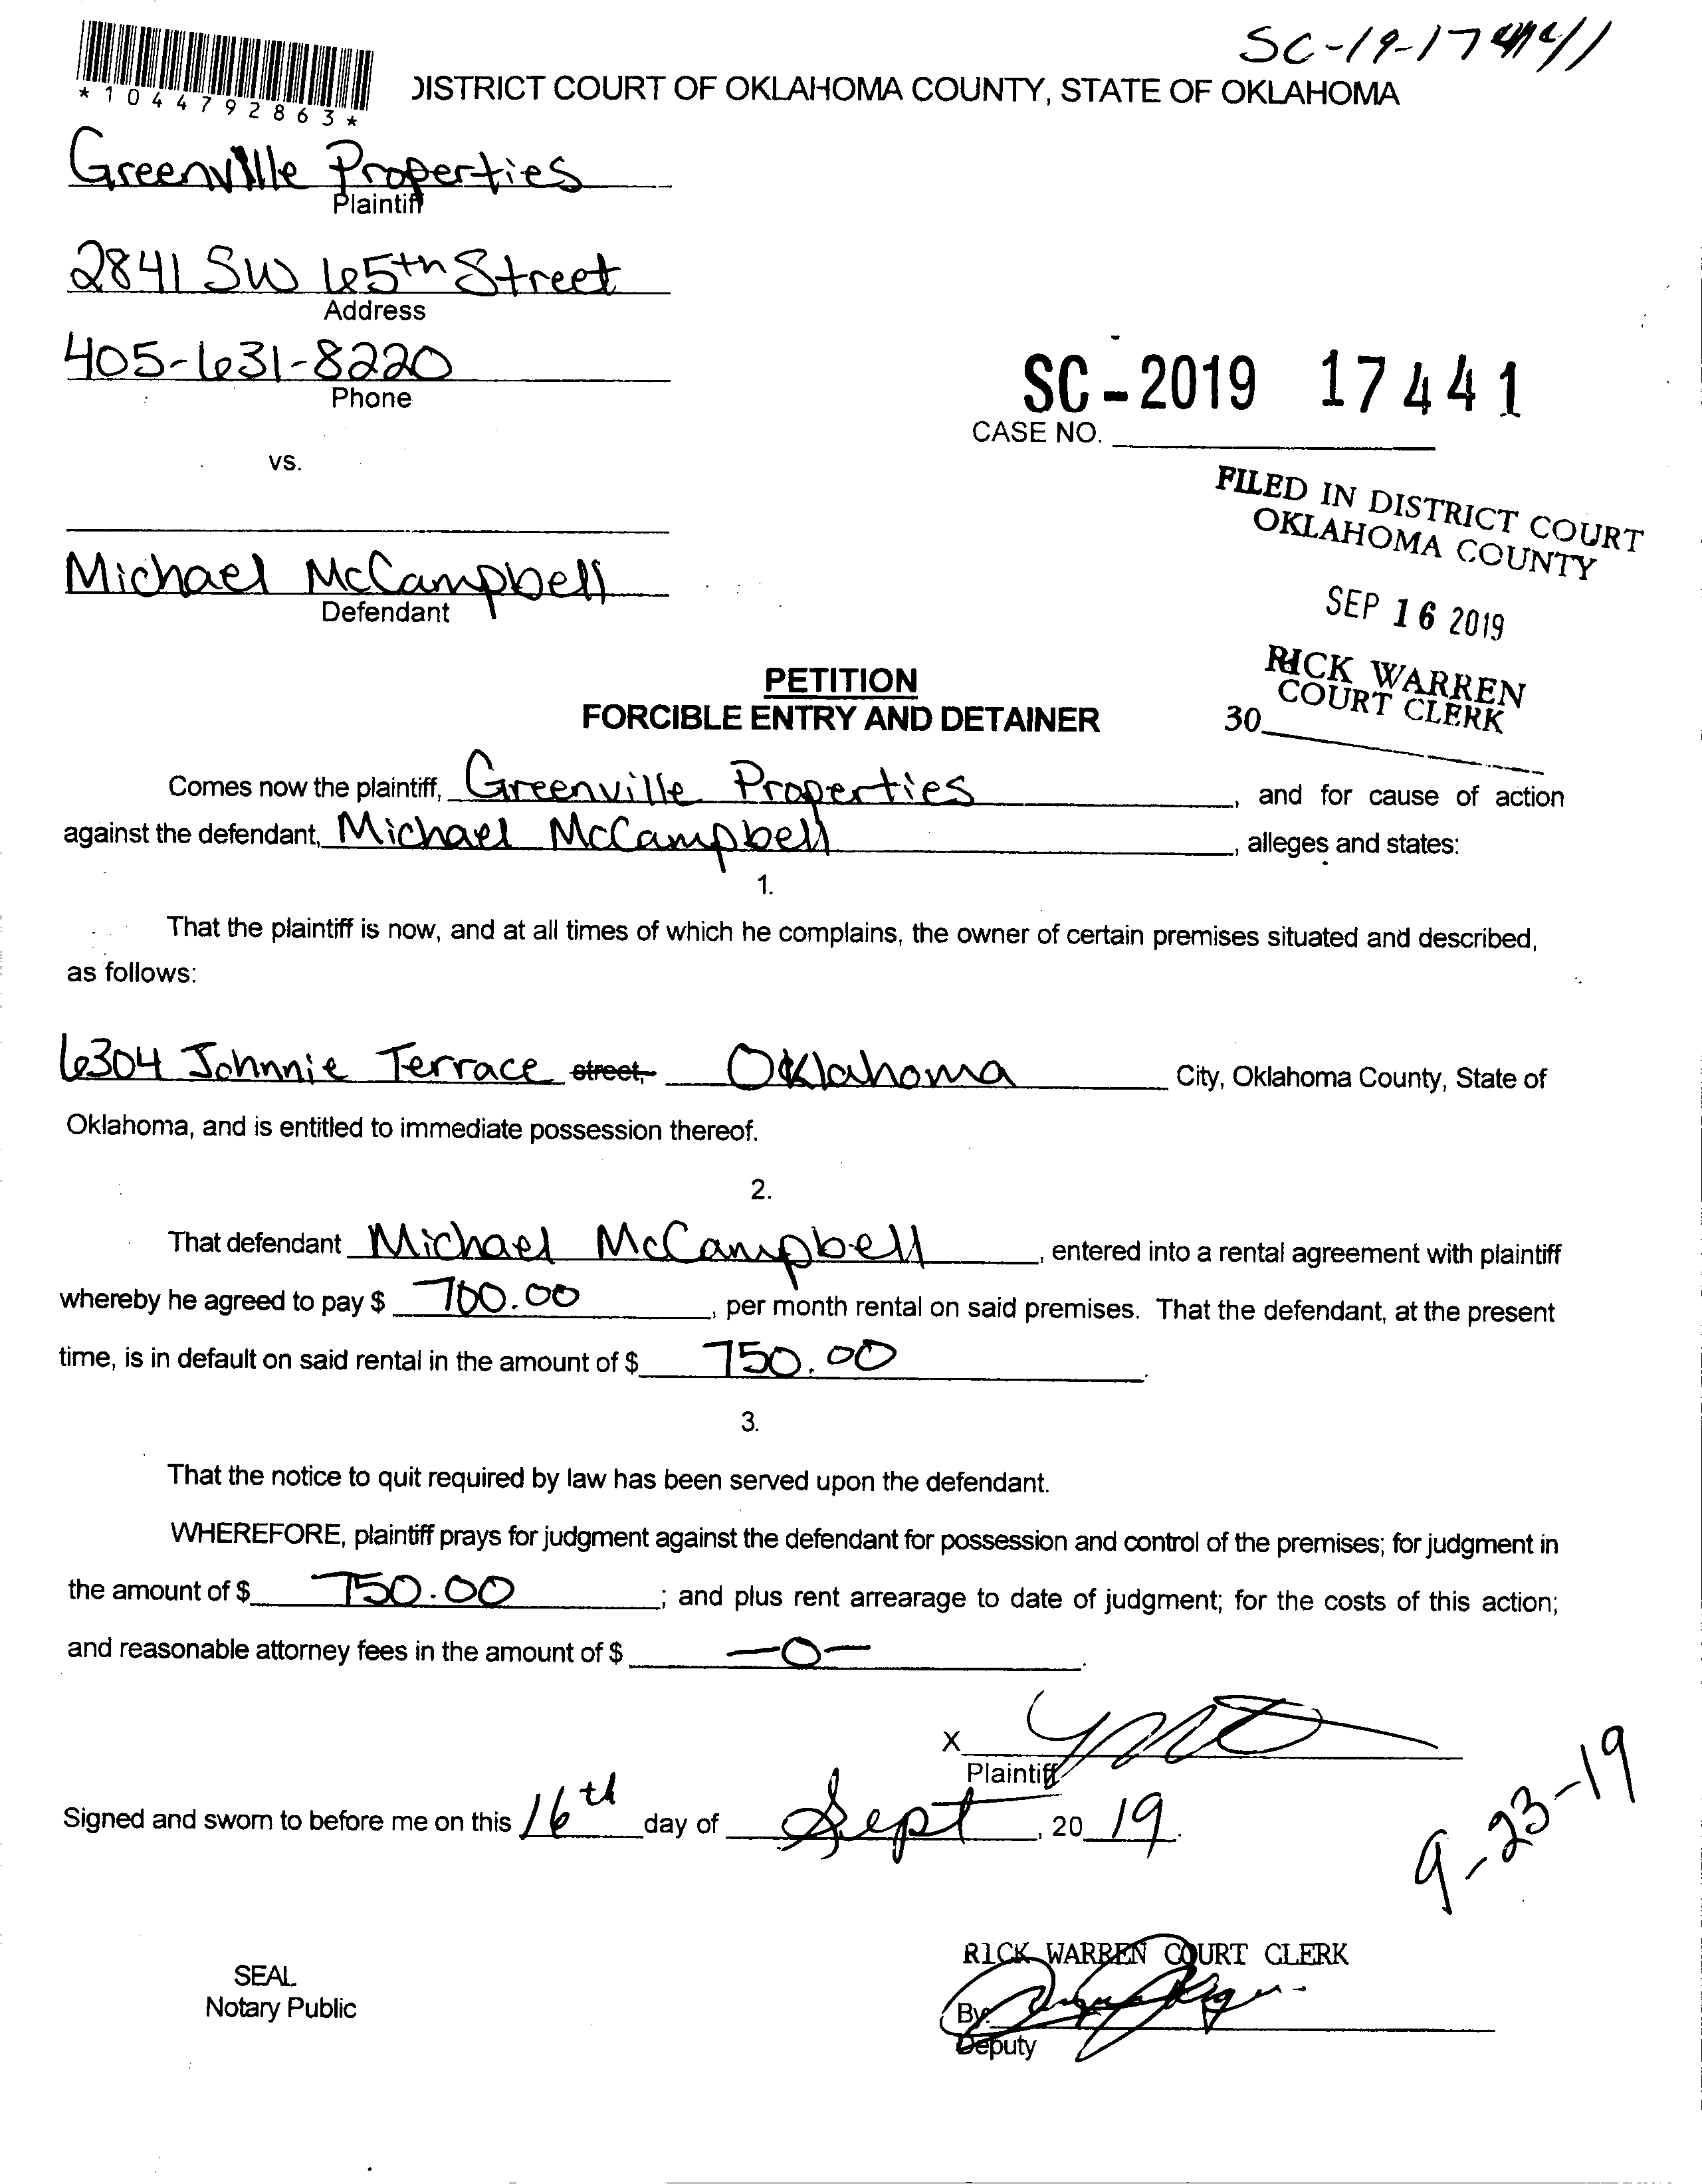 SC-19-17441
*1044792863*
DISTRICT COURT OF OKLAHOMA COUNTY, STATE OF OKLAHOMA
Greenville Properties
Plaintiff
2841 SW 65th Street
Address
405-631-8220
Phone
SC-2019 17441
CASE NO.
vs.
FILED IN DISTRICT COURT
OKLAHOMA COUNTY
SEP 16 2019
RICK WARREN
COURT CLERK
30
Michael McCampbell
Defendant
PETITION
FORCIBLE ENTRY AND DETAINER
Comes now the plaintiff, Greenville Properties, and for cause of action
against the defendant, Michael McCampbell, alleges and states:
1.
That the plaintiff is now, and at all times of which he complains, the owner of certain premises situated and described,
as follows:
6304 Johnnie Terrace street, Oklahoma City, Oklahoma County, State of
Oklahoma, and is entitled to immediate possession thereof.
2.
That defendant Michael McCampbell, entered into a rental agreement with plaintiff
whereby he agreed to pay $ 700.00, per month rental on said premises. That the defendant, at the present
time, is in default on said rental in the amount of $ 750.00.
3.
That the notice to quit required by law has been served upon the defendant.
WHEREFORE, plaintiff prays for judgment against the defendant for possession and control of the premises; for judgment in
the amount of $ 750.00; and plus rent arrearage to date of judgment; for the costs of this action;
and reasonable attorney fees in the amount of $ -0-.
X
Plaintiff
Signed and sworn to before me on this 16th day of Sept, 20 19.
9-23-19
RICK WARREN COURT CLERK
SEAL
Notary Public
By:
Deputy